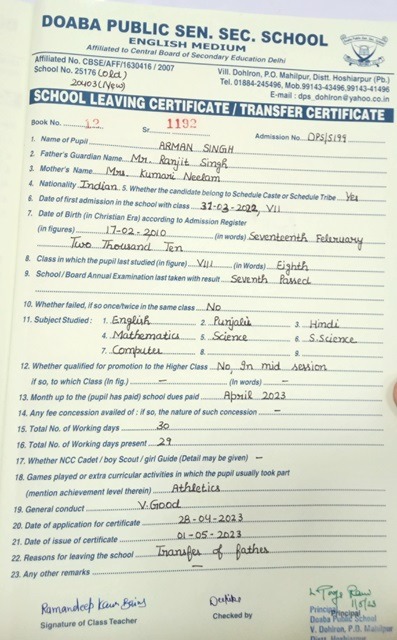 DOABA PUBLIC SEN. SEC. SCHOOL
ENGLISH MEDIUM
Affiliated to Central Board of Secondary Education Delhi
Affiliated No. CBSE/AFF/1630416 / 2007
School No. 25176 (old)
20403 (New)
Vill. Dohlron, P.O. Mahilpur, Distt. Hoshiarpur (Pb.)
Tel. 01884-245496, Mob.99143-43496,99143-41496
E-mail : dps_dohlron@yahoo.co.in
SCHOOL LEAVING CERTIFICATE / TRANSFER CERTIFICATE
Book No. 12 Sr. 1192 Admission No. DPS/5199
1. Name of Pupil ARMAN SINGH
2. Father's Guardian Name Mr. Ranjit Singh
3. Mother's Name Mrs. Kumari Neelam
4. Nationality Indian 5. Whether the candidate belong to Schedule Caste or Schedule Tribe Yes
6. Date of first admission in the school with class 31-03-2022, VII
7. Date of Birth (in Christian Era) according to Admission Register
(in figures) 17-02-2010 (in words) Seventeenth February
Two Thousand Ten
8. Class in which the pupil last studied (in figure) VIII (in Words) Eighth
9. School/Board Annual Examination last taken with result Seventh Passed
10. Whether failed, if so once/twice in the same class No
11. Subject Studied : 1. English 2. Punjabi 3. Hindi
4. Mathematics 5. Science 6. S.Science
7. Computer 8. 9.
12. Whether qualified for promotion to the Higher Class No, In mid session
if so, to which Class (In fig.) — (In words) —
13. Month up to the (pupil has paid) school dues paid April 2023
14. Any fee concession availed of : if so, the nature of such concession —
15. Total No. of Working days 30
16. Total No. of Working days present 29
17. Whether NCC Cadet / boy Scout / girl Guide (Detail may be given) —
18. Games played or extra curricular activities in which the pupil usually took part
(mention achievement level therein) Athletics
19. General conduct V.Good
20. Date of application for certificate 28-04-2023
21. Date of issue of certificate 01-05-2023
22. Reasons for leaving the school Transfer of father
23. Any other remarks —
Ramandeep Kaur
Signature of Class Teacher
Checked by
1/5/23
Principal
Principal
Doaba Public School
V. Dohlron, P.O. Mahilpur